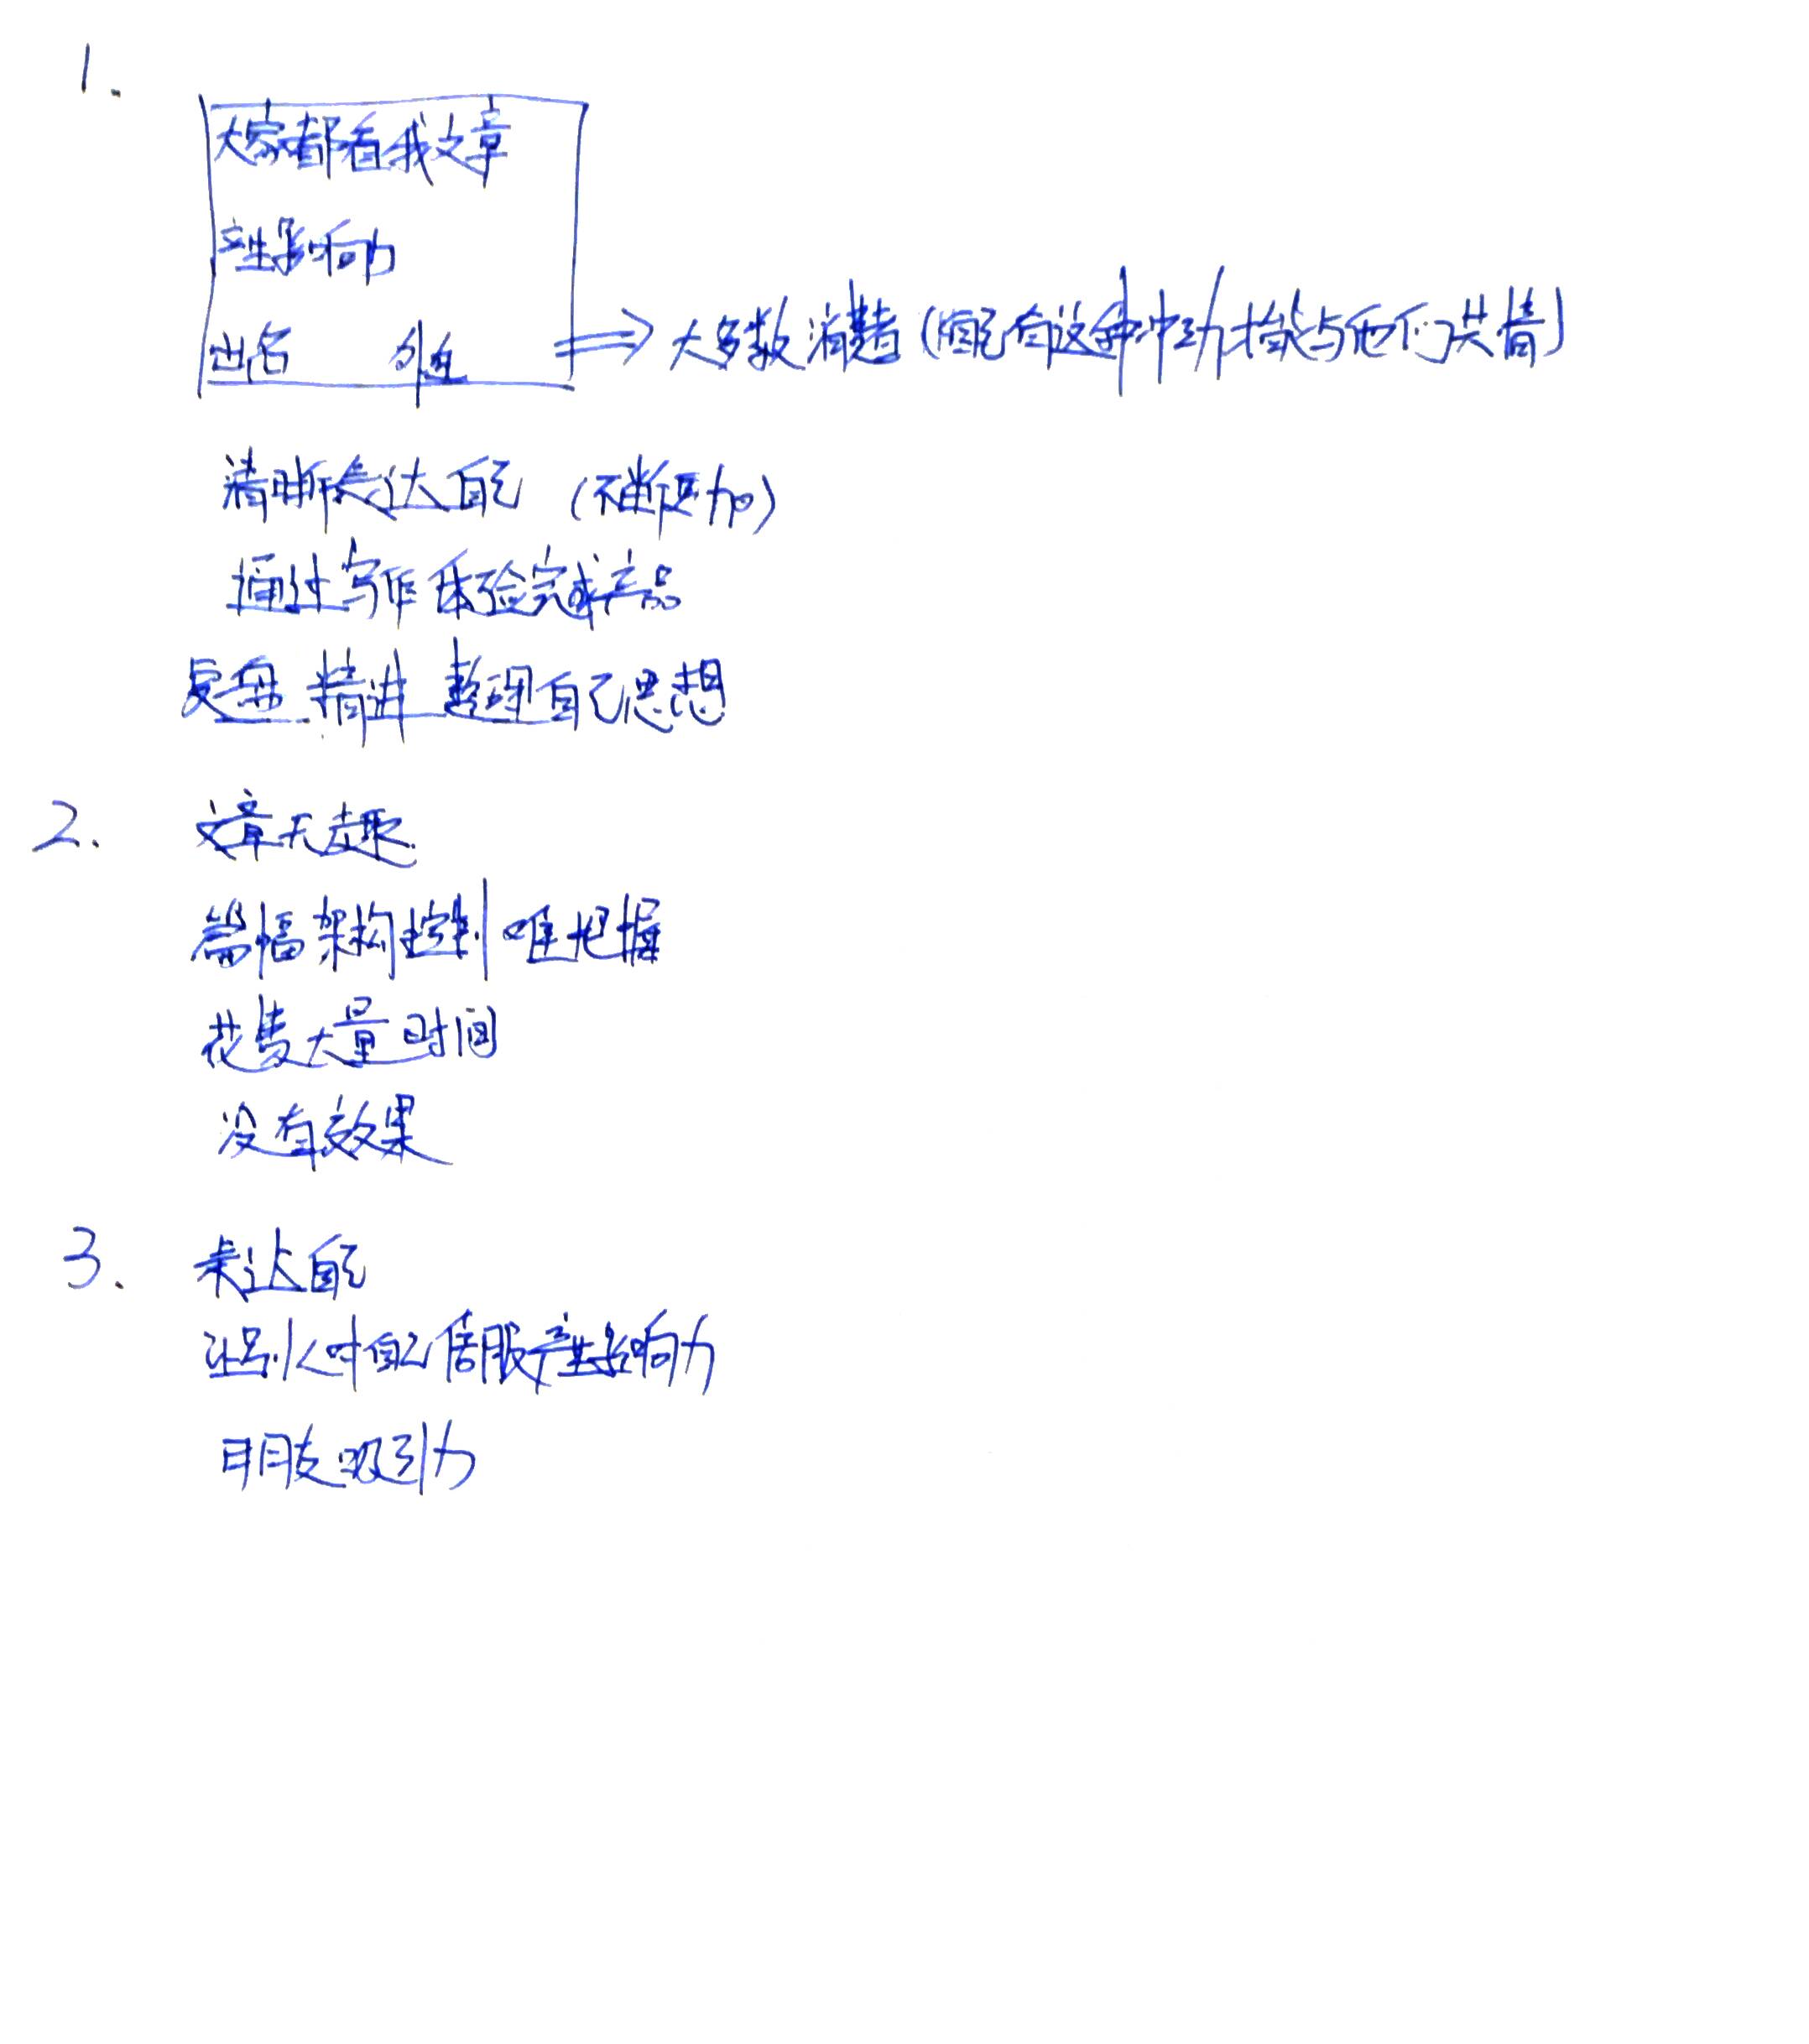 1.
大家都看我文章
产生影响力
出名 ⇒ 大多数消费者(自己有这种冲动 才能与他们共情)
清晰表达自己 (不断更加)
通过写作体验完成产品
复盘 精进 整理自己思想
2. 文章无趣.
篇幅架构控制 难把握
花费大量时间
没有效果
3. 表达自己
让别人对自己信服产生影响力
朋友吸引力